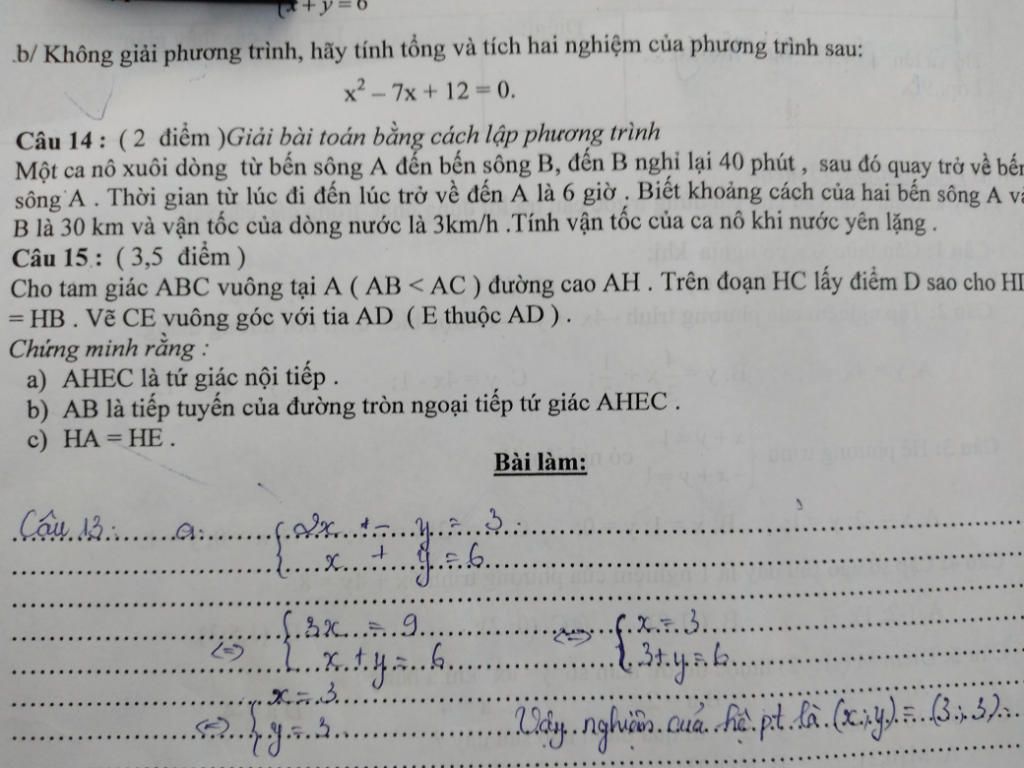 {x + y = 6
b/ Không giải phương trình, hãy tính tổng và tích hai nghiệm của phương trình sau:
x² – 7x + 12 = 0.
Câu 14 : ( 2 điểm )Giải bài toán bằng cách lập phương trình
Một ca nô xuôi dòng từ bến sông A đến bến sông B, đến B nghỉ lại 40 phút , sau đó quay trở về bến
sông A . Thời gian từ lúc đi đến lúc trở về đến A là 6 giờ . Biết khoảng cách của hai bến sông A và
B là 30 km và vận tốc của dòng nước là 3km/h .Tính vận tốc của ca nô khi nước yên lặng .
Câu 15 : ( 3,5 điểm )
Cho tam giác ABC vuông tại A ( AB < AC ) đường cao AH . Trên đoạn HC lấy điểm D sao cho HD
= HB . Vẽ CE vuông góc với tia AD ( E thuộc AD ) .
Chứng minh rằng :
a) AHEC là tứ giác nội tiếp .
b) AB là tiếp tuyến của đường tròn ngoại tiếp tứ giác AHEC .
c) HA = HE .
Bài làm:
Câu 13: a. { 2x - y = 3
x + y = 6
<=> { 3x = 9 <=> { x = 3
x + y = 6 3 + y = 6
<=> { x = 3
y = 3 Vậy nghiệm của hệ pt là (x; y) = (3; 3)